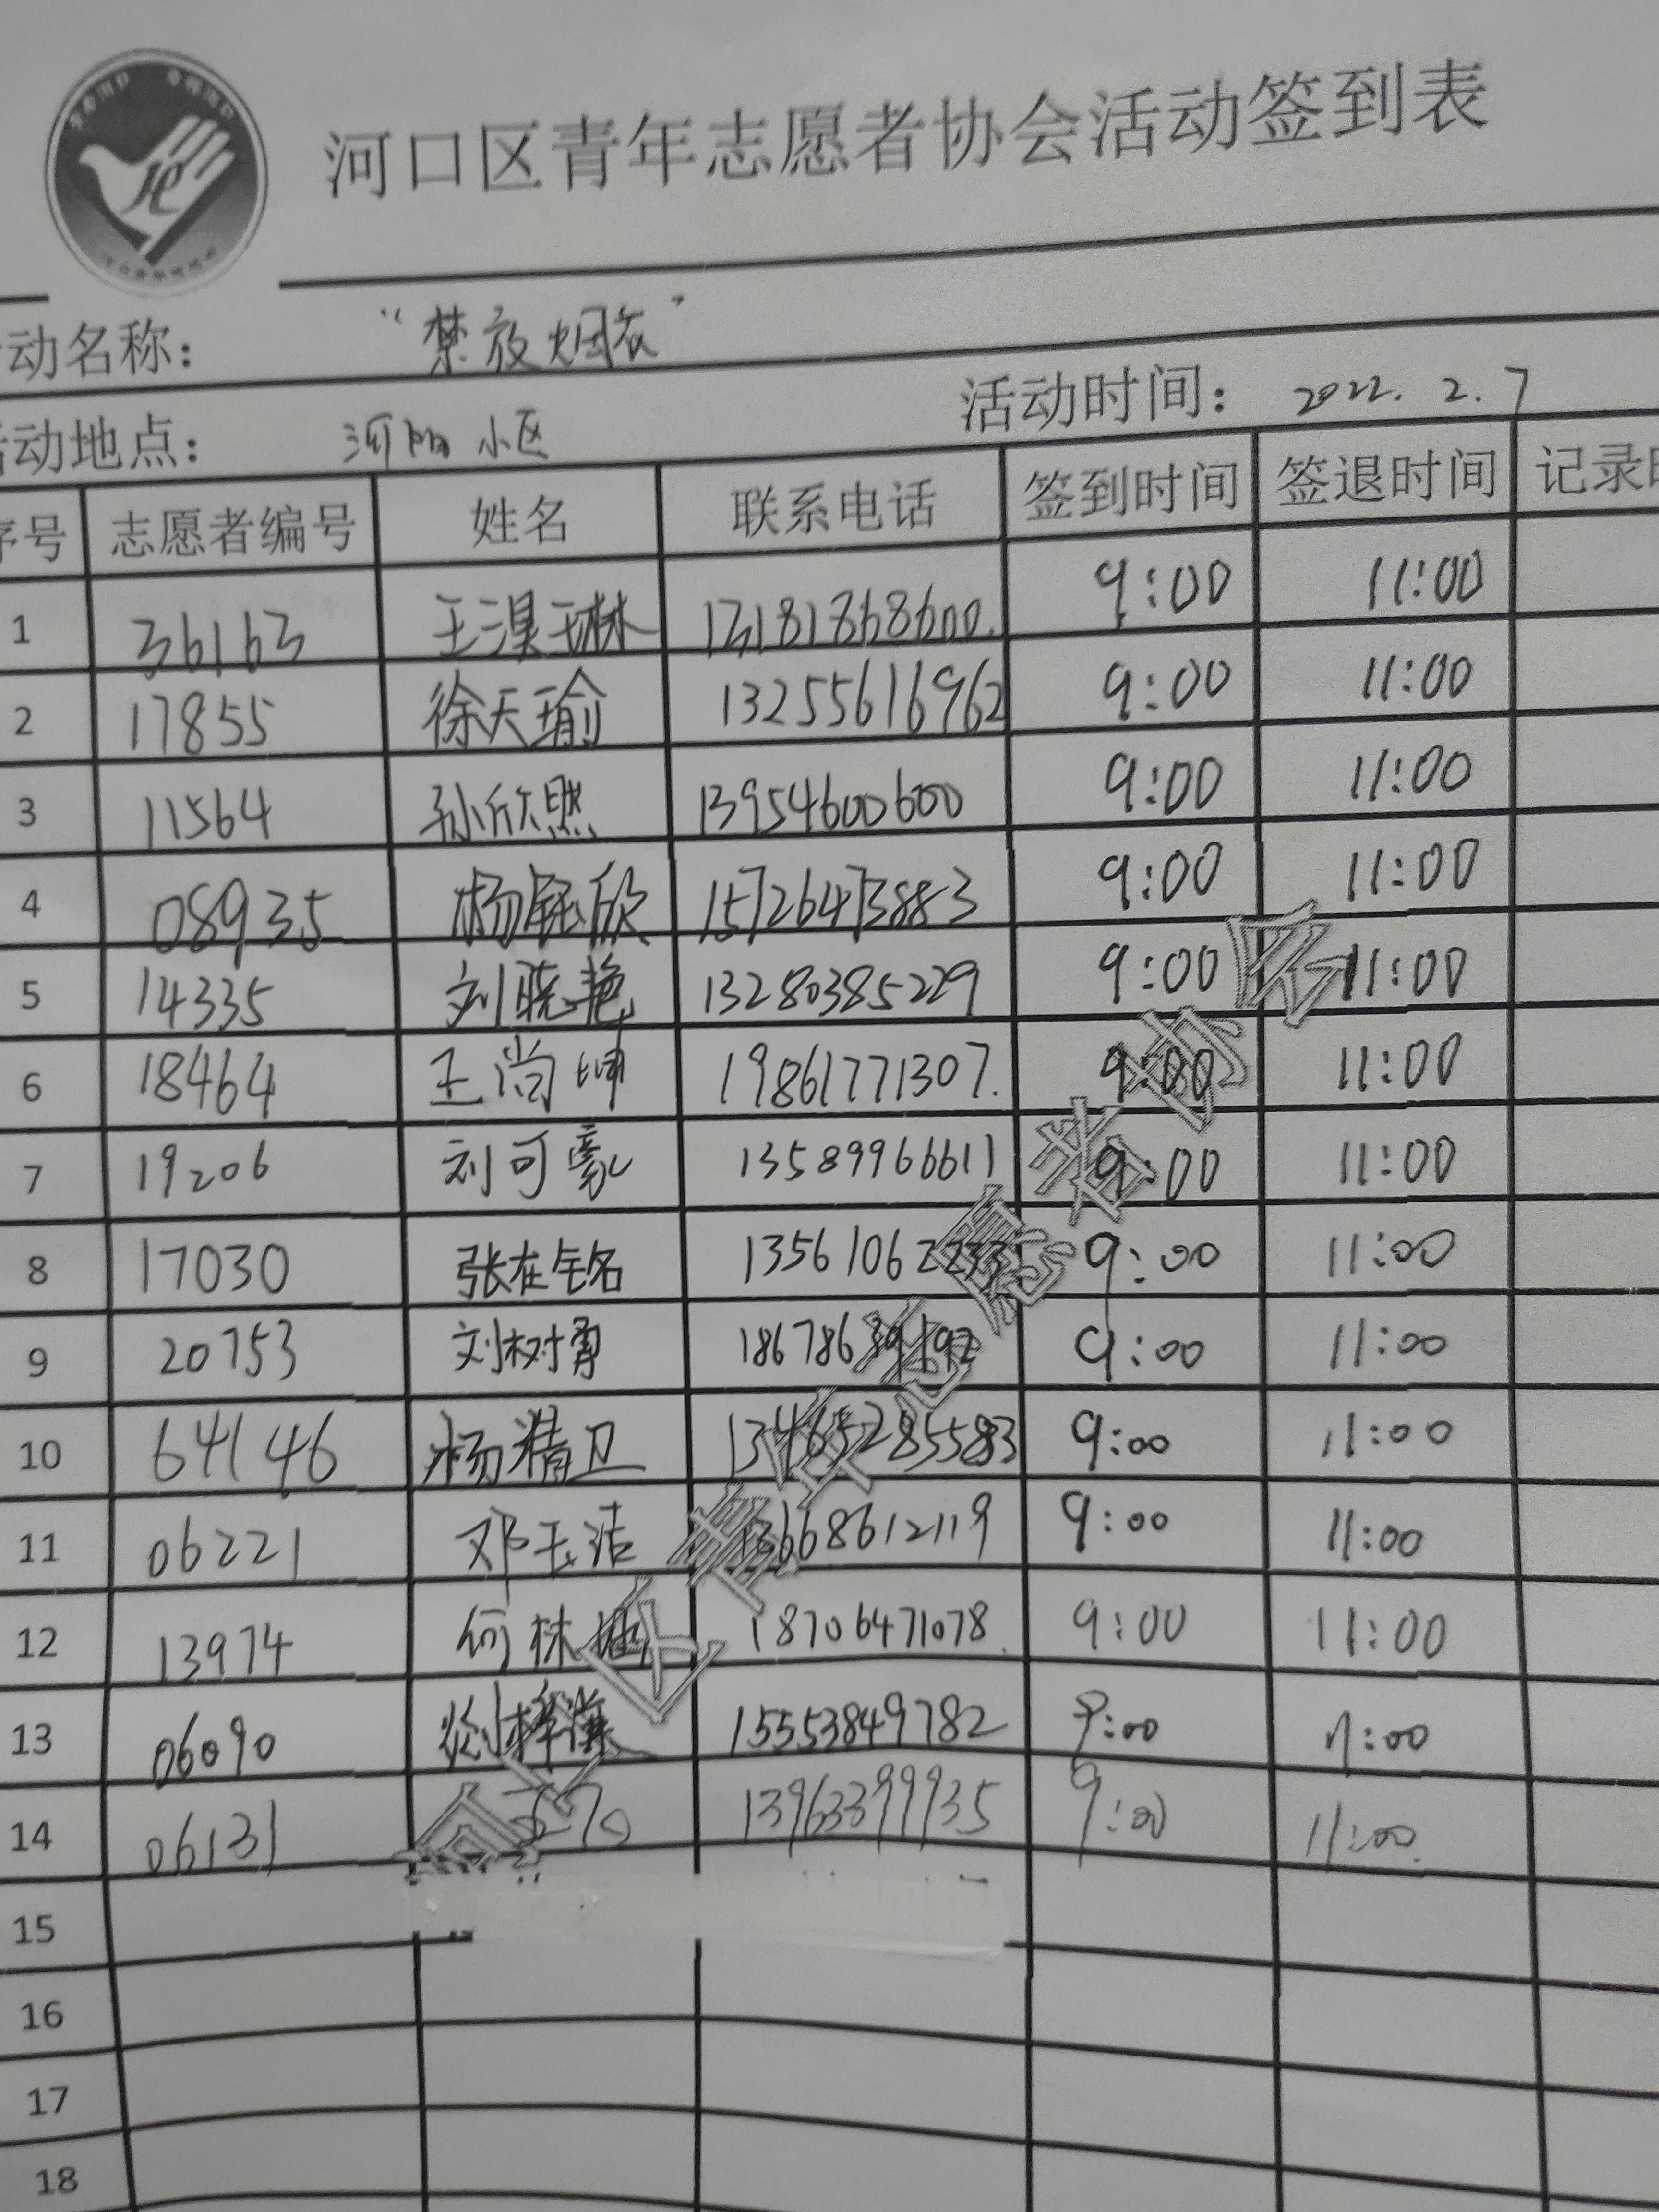 河口区青年志愿者协会活动签到表
动名称： “禁放烟花”
活动地点： 河阳小区 活动时间： 2022.2.7
序号 志愿者编号 姓名 联系电话 签到时间 签退时间 记录时
1 36163 王淏琳 17181868600. 9:00 11:00
2 17855 徐天瑜 13255616962 9:00 11:00
3 11564 孙欣然 13954600600 9:00 11:00
4 08935 杨钰欣 15726473883 9:00 11:00
5 14335 刘晓艳 13280385229 9:00 11:00
6 18464 王尚坤 19861771307. 9:00 11:00
7 19206 刘可豪 13589966611 9:00 11:00
8 17030 张在铭 13561062233 9:00 11:00
9 20753 刘树青 18678639192 9:00 11:00
10 64146 杨精卫 13465285583 9:00 11:00
11 06221 邓玉洁 13668612119 9:00 11:00
12 13974 何林 18706471078. 9:00 11:00
13 06090 15553849782 9:00 11:00
14 06131 13963399935 9:00 11:00.
15
16
17
18
河口区青年志愿者协会